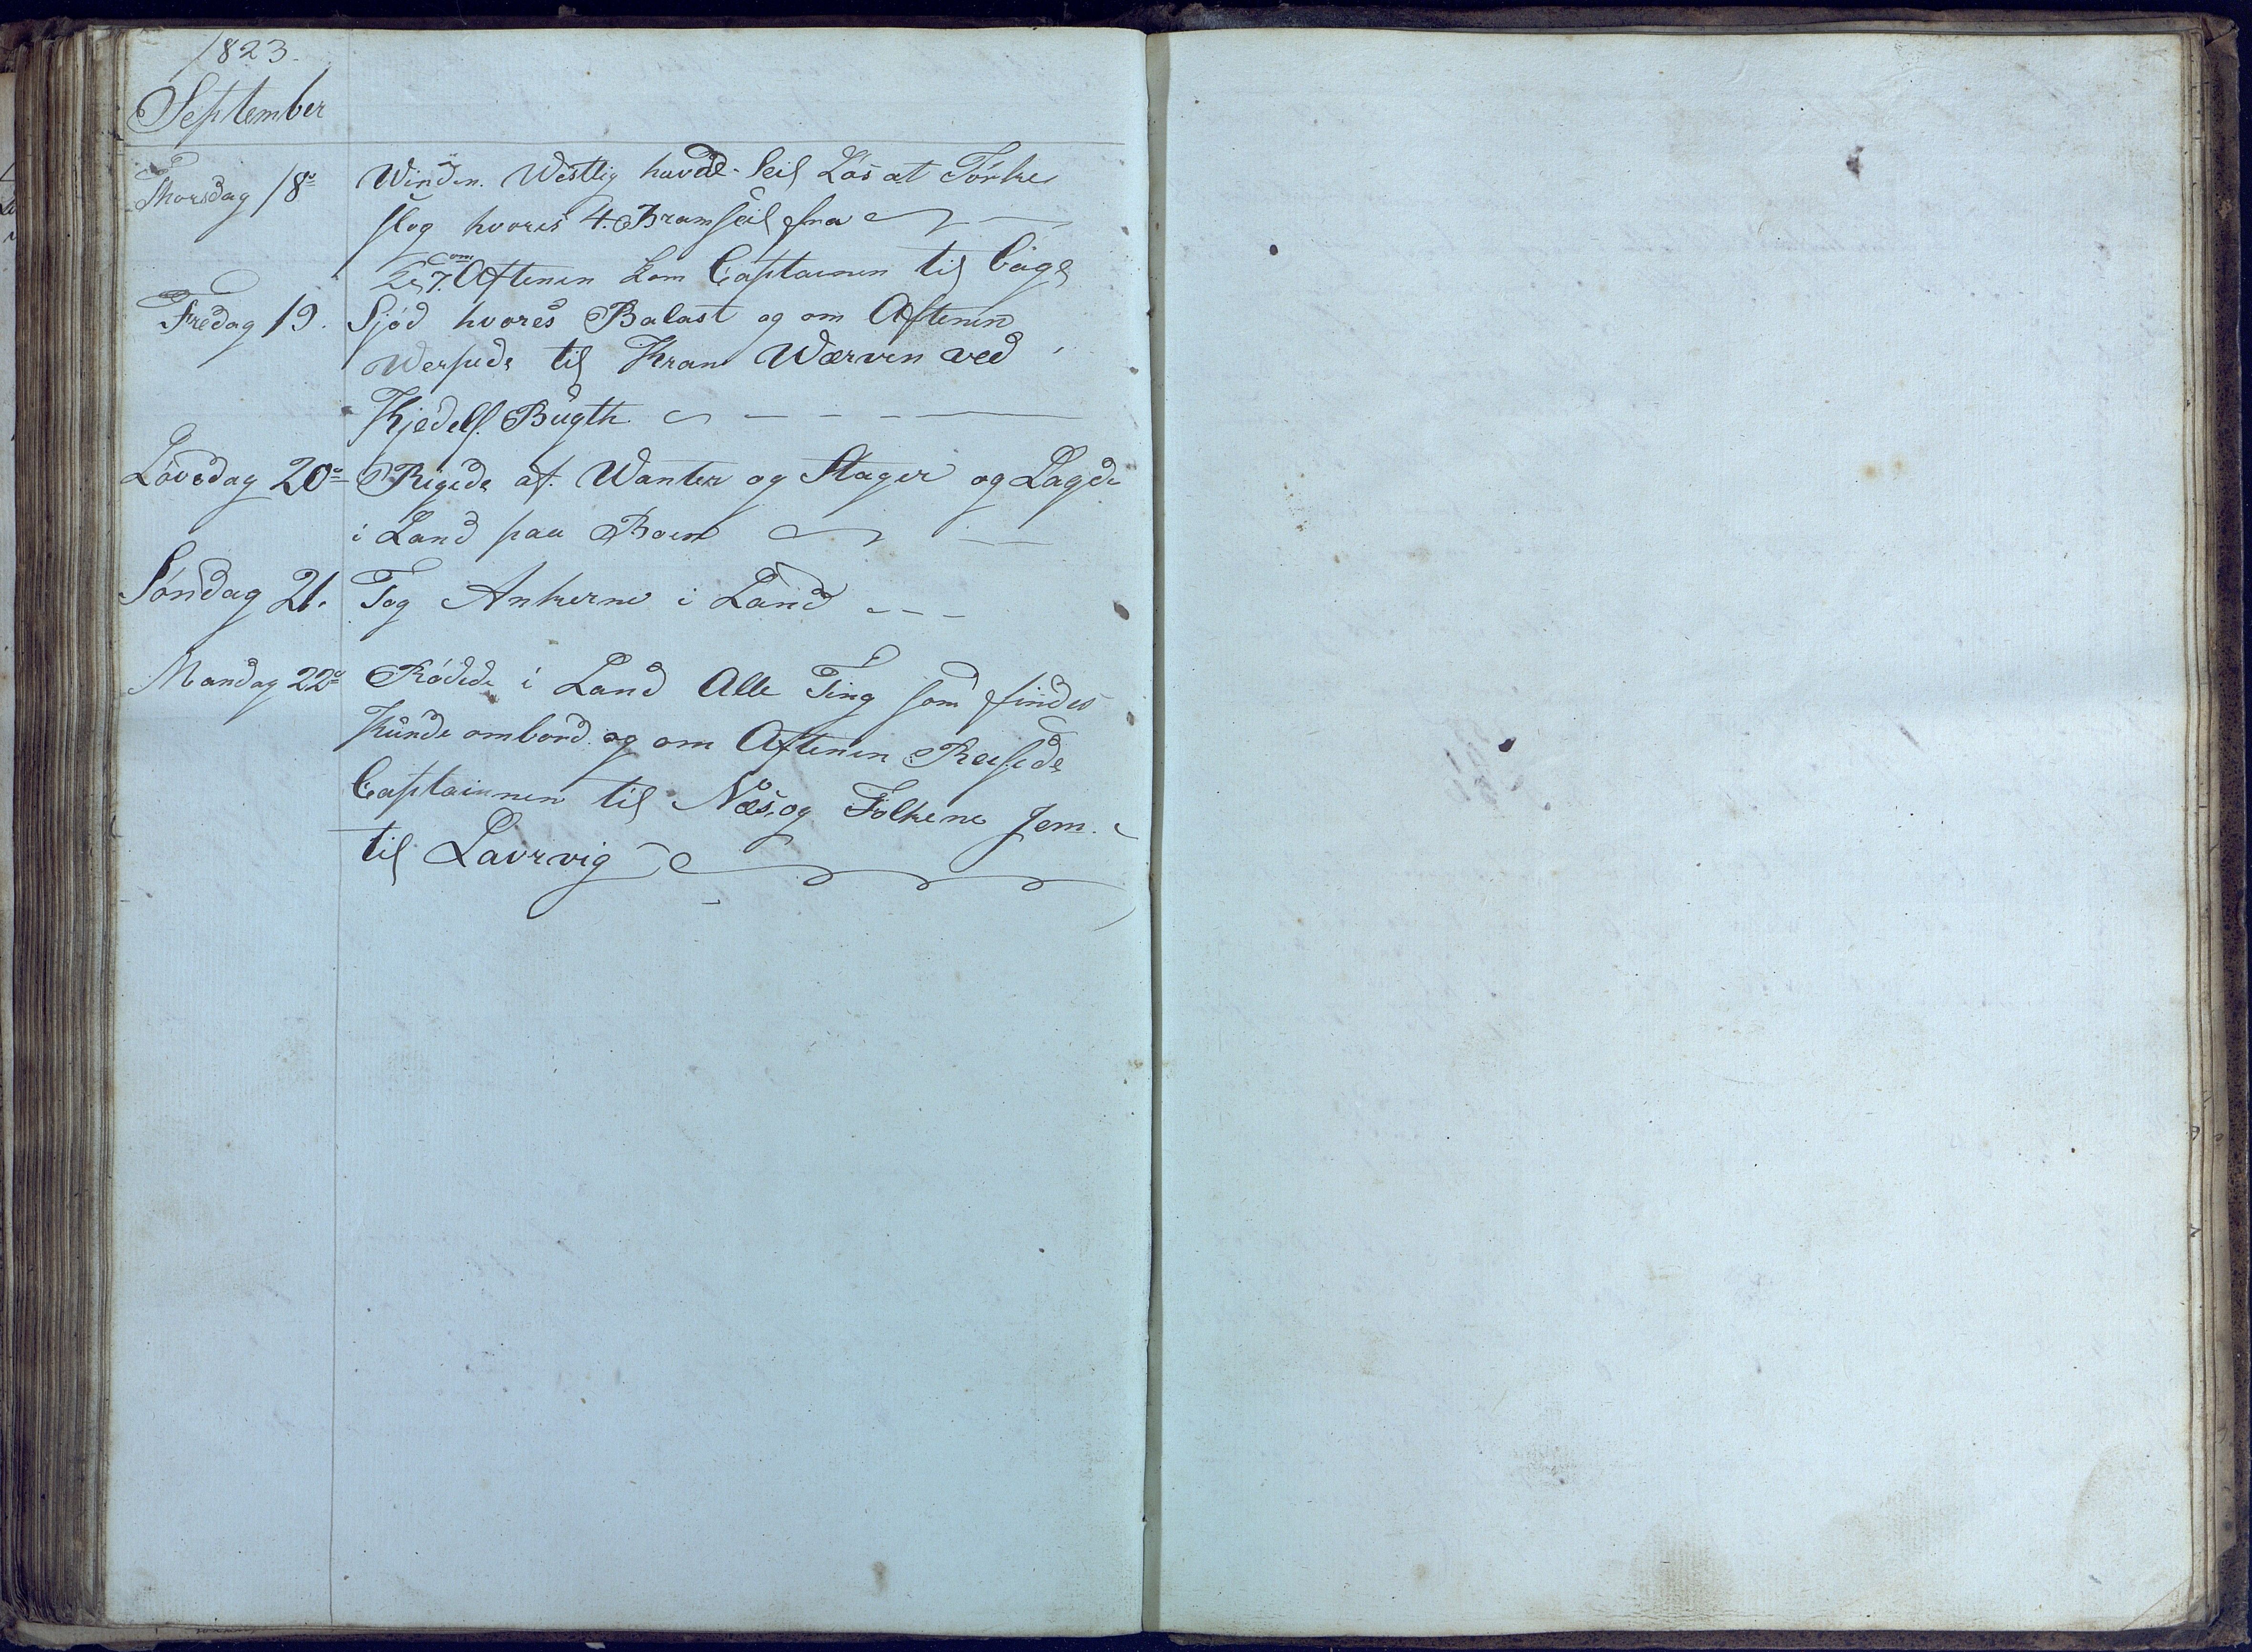 1823.
September
Thorsdag 18de Winden. Westlig havde Seil Løs at Tørke
slog hvores 4. Bramseil fra
Kl 7. om Aftenen kom Captainen tilbage
Fredag 19. Sjød hvores Balast og om Aftenen
Werpede til Kran Wærven ved
Kjedels. Bugth
Løvedag 20de Rigede af Wanter og Stager og Lagde
i Land paa Boen
Søndag 21. Tog Ankerne i Land
Mandag 22de Rødede i Land Alle Ting som findes
Kunde ombord. og om Aftenen Reisede
Captainnen til Næs, og Folkene Jem
til Laurvig